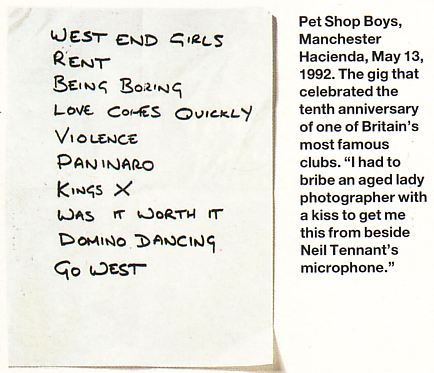 WEST END GIRLS
RENT
BEING BORING
LOVE COMES QUICKLY
VIOLENCE
PANINARO
KINGS X
WAS IT WORTH IT
DOMINO DANCING
GO WEST
Pet Shop Boys,
Manchester
Hacienda, May 13,
1992. The gig that
celebrated the
tenth anniversary
of one of Britain's
most famous
clubs. “I had to
bribe an aged lady
photographer with
a kiss to get me
this from beside
Neil Tennant's
microphone.”